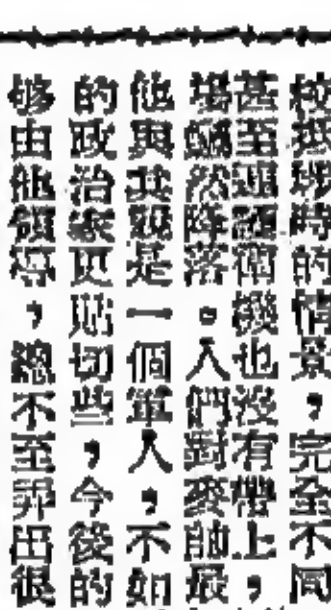 時的情景，完全不同
甚至連護衛機也沒有帶上，
場然降落。人們對麥帥
他與其說是一個軍人，不如
的政治家更貼切些，今後的
够由他領導，總不至弄出很